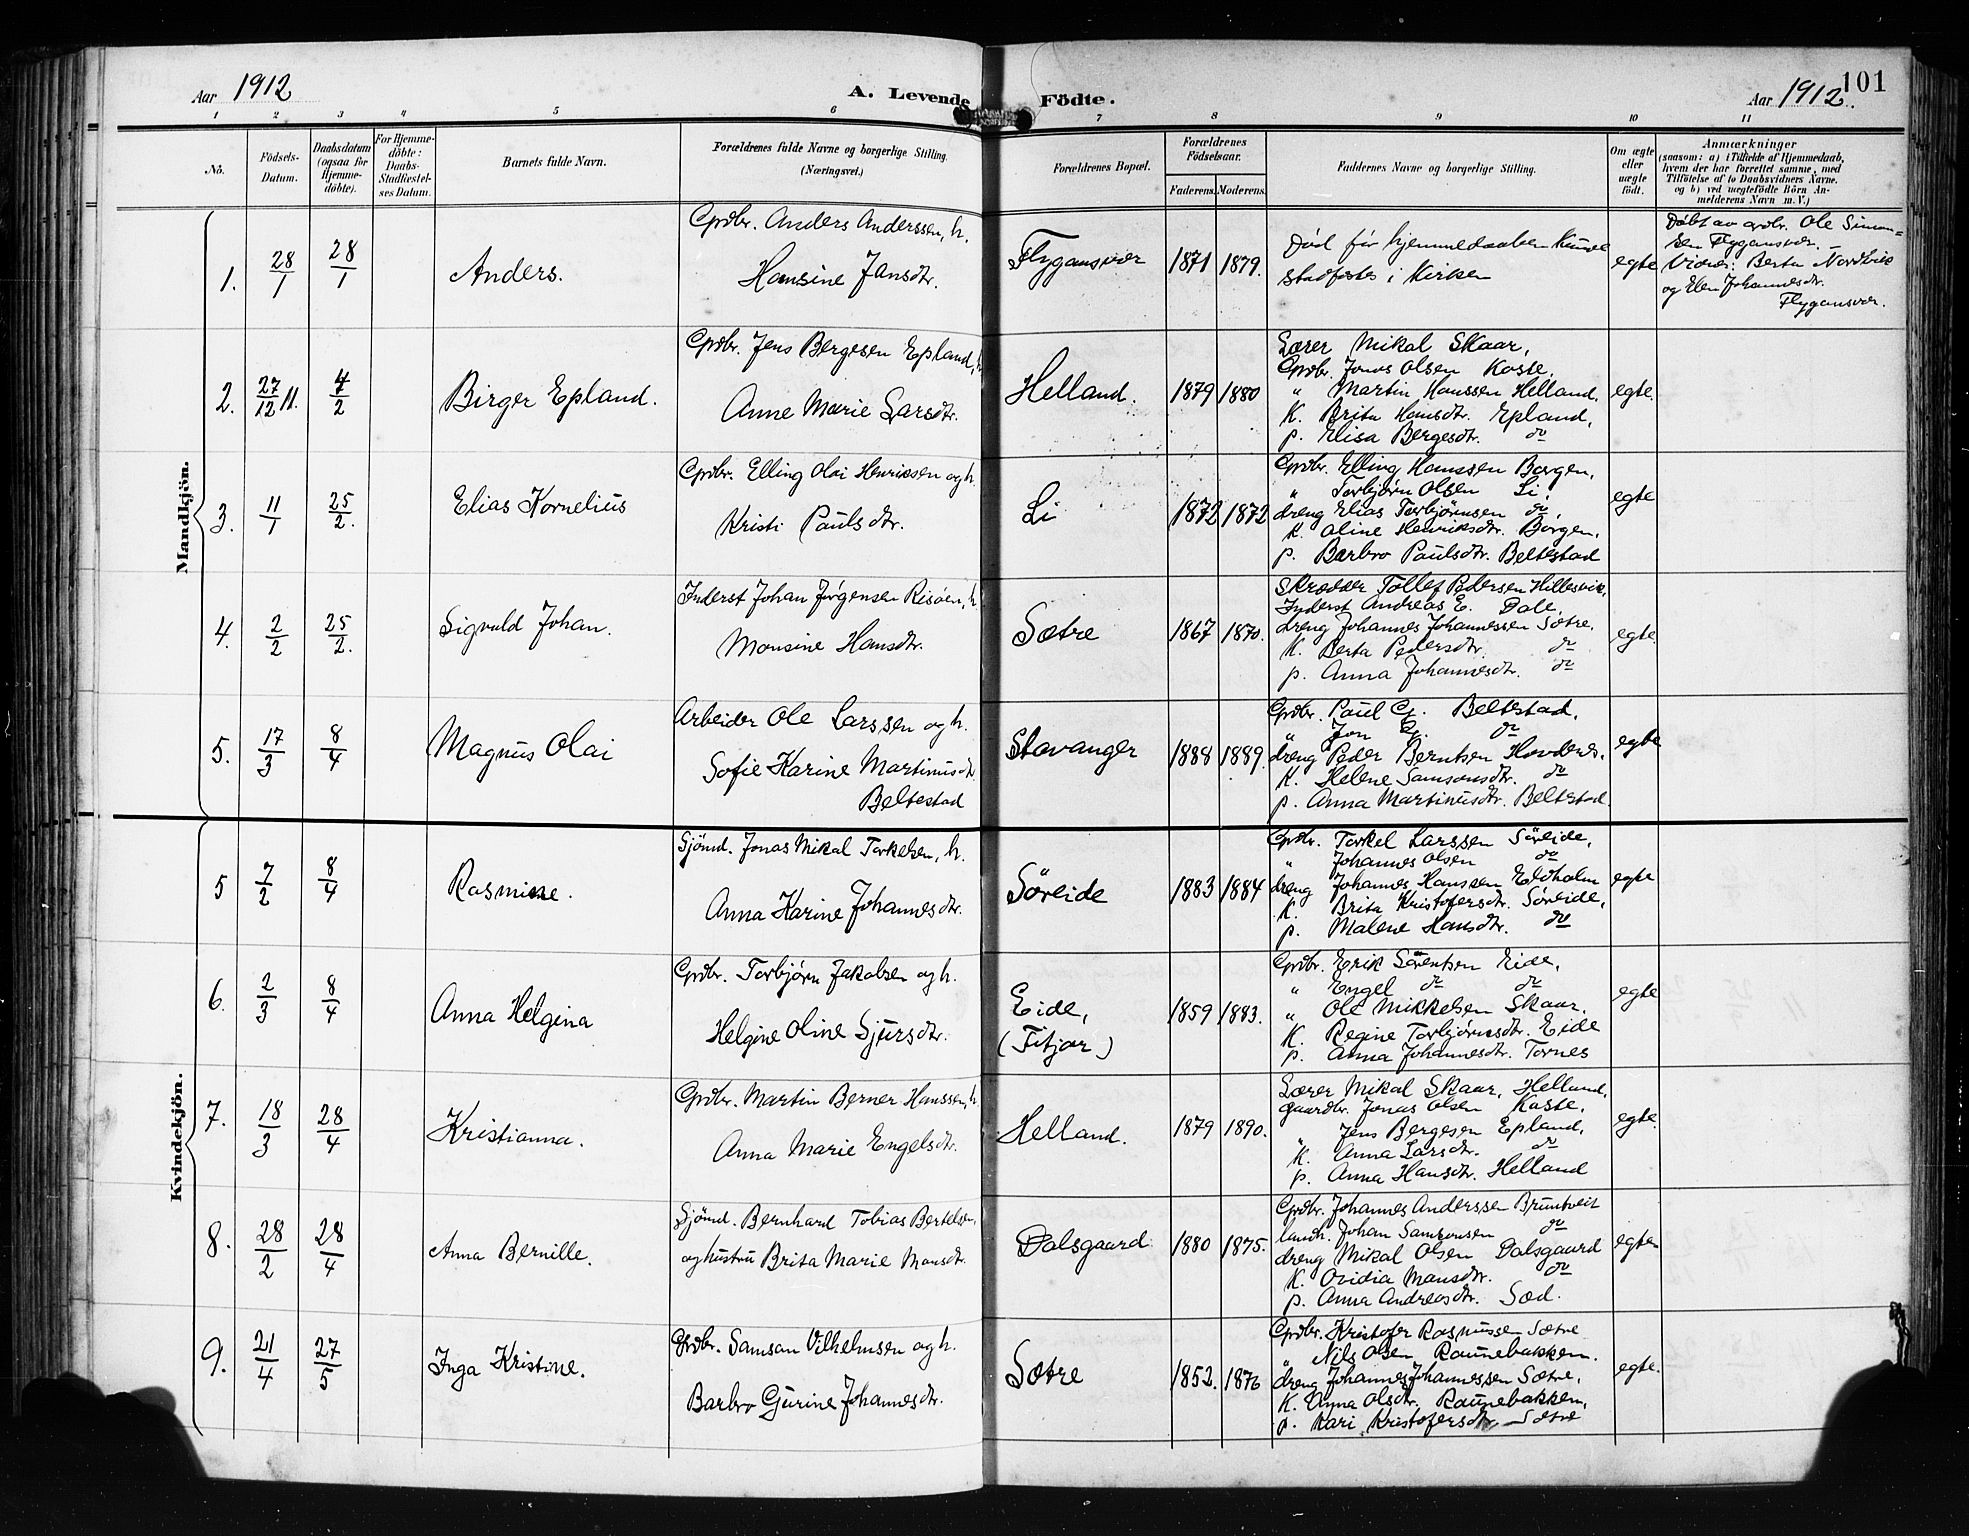 Aar 1912
A. Levende Födte.
Aar 1912.
101
1 2 3 4 5 6 7 8 9 10 11
No.
Födsels-Datum.
Daabsdatum (ogsaa for Hjemme-döbte).
For Hjemme-döbte: Daabs-Stadfæstel-ses Datum.
Barnets fulde Navn.
Forældrenes fulde Navne og borgerlige Stilling. (Næringsvei.)
Forældrenes Bopæl.
Forældrenes Födselsaar.
Faderens. Moderens.
Faddernes Navne og borgerlige Stilling.
Om ægte eller uægte födt.
Anmærkninger
(saasom: a) i Tilfælde af Hjemmedaab,
hvem der har forrettet samme, med
Tilföielse af to Daabsvidners Navne.
og b) ved uægtefödte Börn An-
melderens Navn m. V.)
Mandkjön.
1. 28/1 28/1 Anders.
Grdbr. Anders Anderssen, h.
Hansine Jansdtr.
Flygansvær 1871 1879.
Död för hjemmedaaben kunde
stadfestes i Kirken
egte
Döbt av grdbr. Ole Simon-
sen Flygansvær. –
Vidner: Berta Nordvik
og Elen Johannesdtr.
Flygansvær.
2. 27/12 11. 4/2 Birger Epland.
Grdbr. Jens Bergesen Epland, h.
Anne Marie Larsdtr.
Helland. 1879 1880
Lærer Mikal Skaar,
Grdbr. Jonas Olsen Kaste,
" Martin Hanssen Helland,
K. Brita Hansdtr. Epland,
p. Elisa Bergesdtr. do
egte.
3. 11/1 25/2. Elias Kornelius
Grdbr. Elling Olai Henriksen og h.
Kristi Paulsdtr.
Li 1872 1872
Grdbr. Elling Hanssen Borgen,
" Torbjørn Olsen Li,
dreng Elias Torbjørnsen do,
K. Oline Henriksdtr. Borgen,
p. Barbro Paulsdtr. Beltestad
egte
4. 2/2 25/2. Sigvald Johan.
Inderst Johan Jørgensen Risøen, h.
Monsine Hansdtr.
Sætre 1867 1870.
Skrædder Tollef Pedersen Hillesvik,
Inderst Andreas E. Dale,
dreng Johannes Johannessen Sætre,
K. Berta Pedersdtr. do
p. Anna Johannesdtr. do
egte.
5. 17/3 8/4 Magnus Olai
Arbeider Ole Larssen og h.
Sofie Karine Martinusdtr.
Beltestad
Stavanger 1888 1889.
Grdbr. Paul G. Beltestad,
" Jon G. do
dreng Peder Berntsen Hovdenes,
K. Helene Samsonsdtr. do
p. Anna Martinusdtr. Beltestad
egte
Kvindekjön.
5 7/2 8/4 Rasmine.
Sjömd. Jonas Mikal Torkelsen, h.
Anna Karine Johannesdtr.
Söreide 1883 1884
Grdbr. Torkel Larssen Söreide,
" Johannes Olsen do
dreng Johannes Hanssen Eldholm
K. Brita Kristofersdtr. Söreide,
p. Malene Hansdtr. do
egte
6. 2/3 8/4 Anna Helgina
Grdbr. Torbjørn Jakobsen og h.
Helgine Oline Sjursdtr.
Eide,
(Fitjar)
1859 1883.
Grdbr. Erik Sörensen Eide,
" Engel do do
" Ole Mikkelsen Skaar,
K. Regine Torbjørnsdtr. Eide
p. Anna Johannesdtr. Tornes
egte
7. 18/3 28/4 Kristianna.
Grdbr. Martin Berner Hanssen, h.
Anna Marie Engelsdtr.
Helland. 1879 1890.
Lærer Mikal Skaar, Helland,
gaardbr. Jonas Olsen Kaste,
" Jens Bergesen Epland,
K. Anna Larsdtr. do
p. Anna Hansdtr. Helland
egte.
8. 28/2 28/4 Anna Bernille.
Sjömd. Bernhard Tobias Bertelsen,
og hustru Brita Marie Monsdtr.
Dalsgaard 1880 1875.
Grdbr. Johannes Anderssen Bruntveit
landh. Johan Samsonsen do
dreng Mikal Olsen Dalsgaard
K. Ovidia Mansdtr. do
p. Anna Andreasdtr. Sæd.
egte
9. 21/4 27/5 Inga Kristine.
Grdbr. Samson Vilhelmsen og h.
Barbro Gurine Johannesdtr.
Sætre 1852. 1876
Grdbr. Kristofer Rasmussen Sætre
" Nils Olsen Raunebakken.
dreng Johannes Johannessen Sætre,
K. Anna Olsdtr. Raunebakken,
p. Kari Kristofersdtr. Sætre
egte.